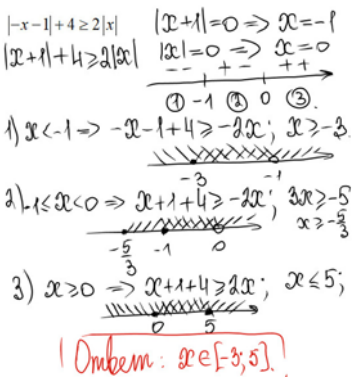 |−x−1|+4≥2|x|   |x+1|=0 => x=-1
|x+1|+4≥2|x|   |x|=0 => x=0
-- + - ++
① -1 ② 0 ③.
1) x<-1 => -x-1+4≥-2x; x≥-3.
-3 -1
2) -1≤x<0 => x+1+4≥-2x; 3x≥-5
x≥-5/3
-5/3 -1 0
3) x≥0 => x+1+4≥2x; x≤5;
0 5
Ответ: x∈[-3;5].